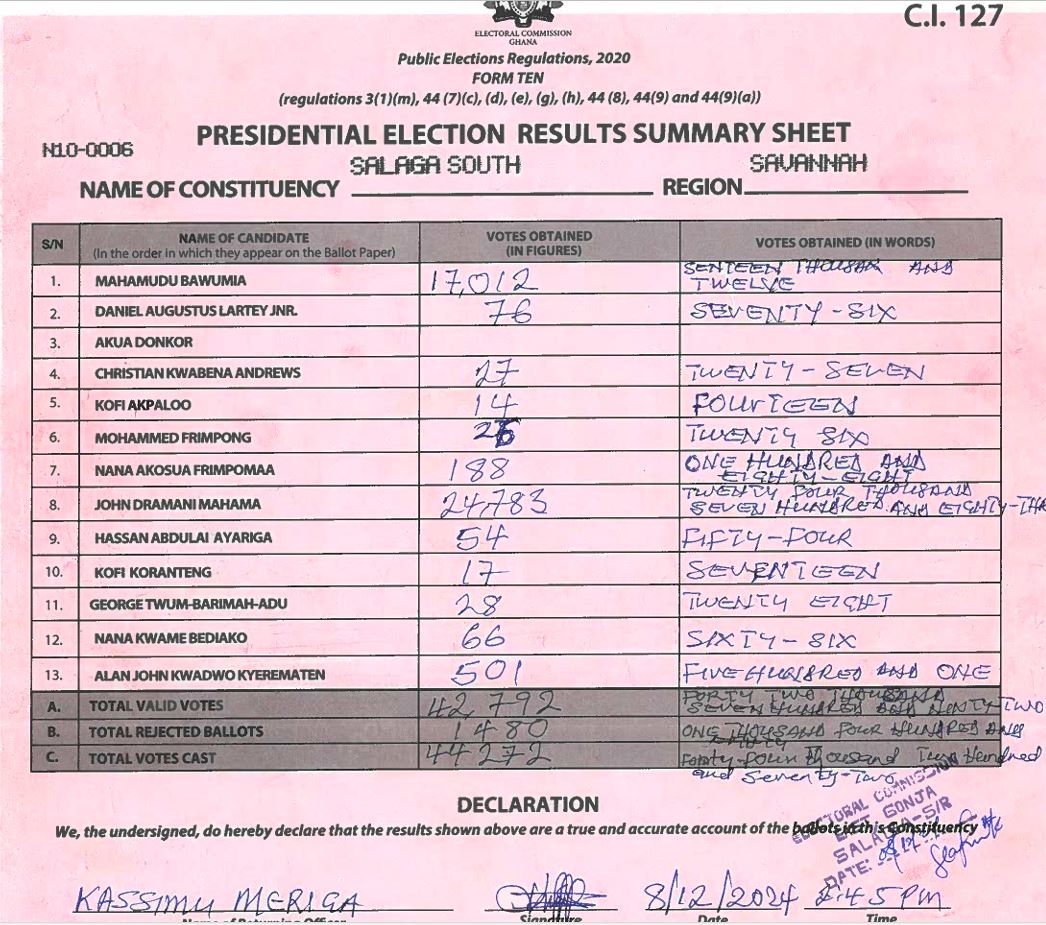 C.I. 127
ELECTORAL COMMISSION
GHANA
Public Elections Regulations, 2020
FORM TEN
(regulations 3(1)(m), 44 (7)(c), (d), (e), (g), (h), 44 (8), 44(9) and 44(9)(a))
PRESIDENTIAL ELECTION RESULTS SUMMARY SHEET
N10-0006
SALAGA SOUTH SAVANNAH
NAME OF CONSTITUENCY REGION
S/N NAME OF CANDIDATE (In the order in which they appear on the Ballot Paper) VOTES OBTAINED (IN FIGURES) VOTES OBTAINED (IN WORDS)
1. MAHAMUDU BAWUMIA 17,012 SENTEEN THOUSAN AND TWELVE
2. DANIEL AUGUSTUS LARTEY JNR. 76 SEVENTY-SIX
3. AKUA DONKOR
4. CHRISTIAN KWABENA ANDREWS 27 TWENTY-SEVEN
5. KOFI AKPALOO 14 FOURTEEN
6. MOHAMMED FRIMPONG 26 TWENTY SIX
7. NANA AKOSUA FRIMPOMAA 188 ONE HUNDRED AND EIGHTY-EIGHT
8. JOHN DRAMANI MAHAMA 24,783 TWENTY FOUR THOUSAND SEVEN HUNDRED AND EIGHTY-THR
9. HASSAN ABDULAI AYARIGA 54 FIFTY-FOUR
10. KOFI KORANTENG 17 SEVENTEEN
11. GEORGE TWUM-BARIMAH-ADU 28 TWENTY EIGHT
12. NANA KWAME BEDIAKO 66 SIXTY-SIX
13. ALAN JOHN KWADWO KYEREMATEN 501 FIVE HUNDRED AND ONE
A. TOTAL VALID VOTES 42,792 FORTY TWO THOUSAND SEVEN HUNDRED AND NINTY TWO
B. TOTAL REJECTED BALLOTS 1480 ONE THOUSAND FOUR HUNDRED AND
C. TOTAL VOTES CAST 44272 Forty-four Thousand Two Hundred and Seventy-Two
DECLARATION
We, the undersigned, do hereby declare that the results shown above are a true and accurate account of the ballots in this Constituency
ELECTORAL COMMISSION
EAST GONJA
SALAGA-S/R
DATE:
KASSIMU MERIGA 8/12/2024 2:45PM
Name of Returning Officer Signature Date Time